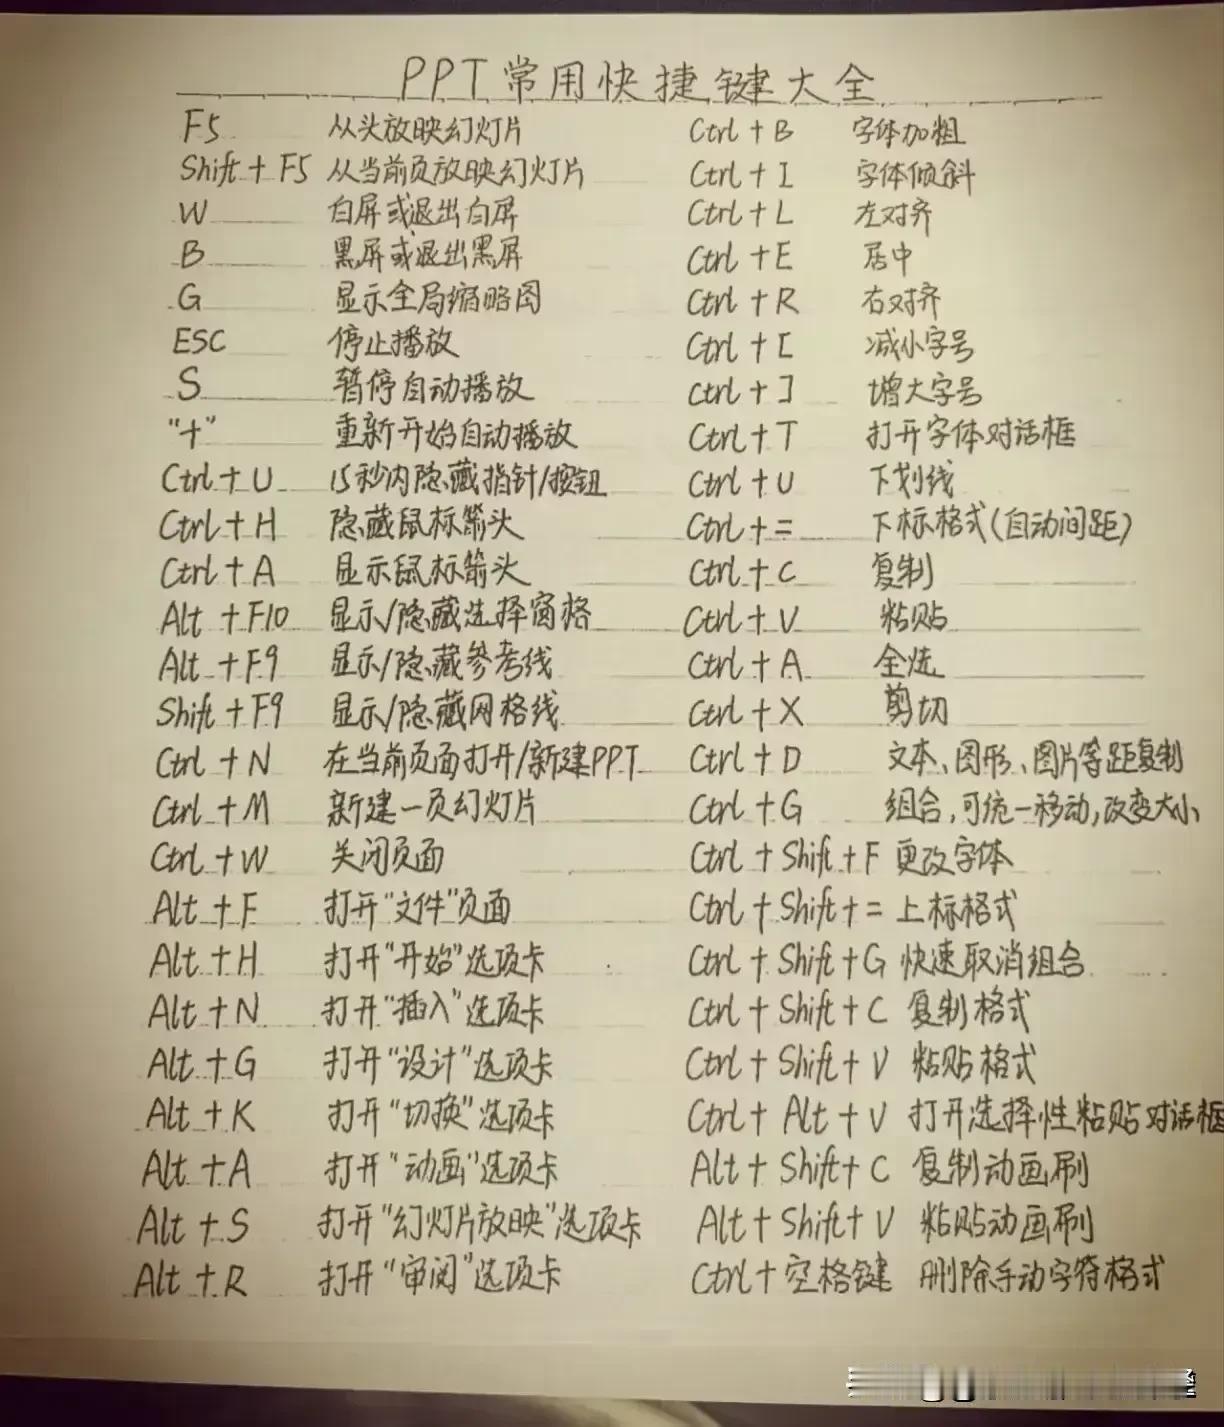 PPT常用快捷键大全
F5 从头放映幻灯片
Shift + F5 从当前页放映幻灯片
W 白屏或退出白屏
B 黑屏或退出黑屏
G 显示全局缩略图
ESC 停止播放
S 暂停自动播放
"+" 重新开始自动播放
Ctrl + U 15秒内隐藏指针/按钮
Ctrl + H 隐藏鼠标箭头
Ctrl + A 显示鼠标箭头
Alt + F10 显示/隐藏选择窗格
Alt + F9 显示/隐藏参考线
Shift + F9 显示/隐藏网格线
Ctrl + N 在当前页面打开/新建PPT
Ctrl + M 新建一页幻灯片
Ctrl + W 关闭页面
Alt + F 打开"文件"页面
Alt + H 打开"开始"选项卡
Alt + N 打开"插入"选项卡
Alt + G 打开"设计"选项卡
Alt + K 打开"切换"选项卡
Alt + A 打开"动画"选项卡
Alt + S 打开"幻灯片放映"选项卡
Alt + R 打开"审阅"选项卡
Ctrl + B 字体加粗
Ctrl + I 字体倾斜
Ctrl + L 左对齐
Ctrl + E 居中
Ctrl + R 右对齐
Ctrl + [ 减小字号
Ctrl + ] 增大字号
Ctrl + T 打开字体对话框
Ctrl + U 下划线
Ctrl + = 下标格式(自动间距)
Ctrl + C 复制
Ctrl + V 粘贴
Ctrl + A 全选
Ctrl + X 剪切
Ctrl + D 文本、图形、图片等距复制
Ctrl + G 组合,可统一移动,改变大小
Ctrl + Shift + F 更改字体
Ctrl + Shift + = 上标格式
Ctrl + Shift + G 快速取消组合
Ctrl + Shift + C 复制格式
Ctrl + Shift + V 粘贴格式
Ctrl + Alt + V 打开选择性粘贴对话框
Alt + Shift + C 复制动画刷
Alt + Shift + V 粘贴动画刷
Ctrl + 空格键 删除手动字符格式